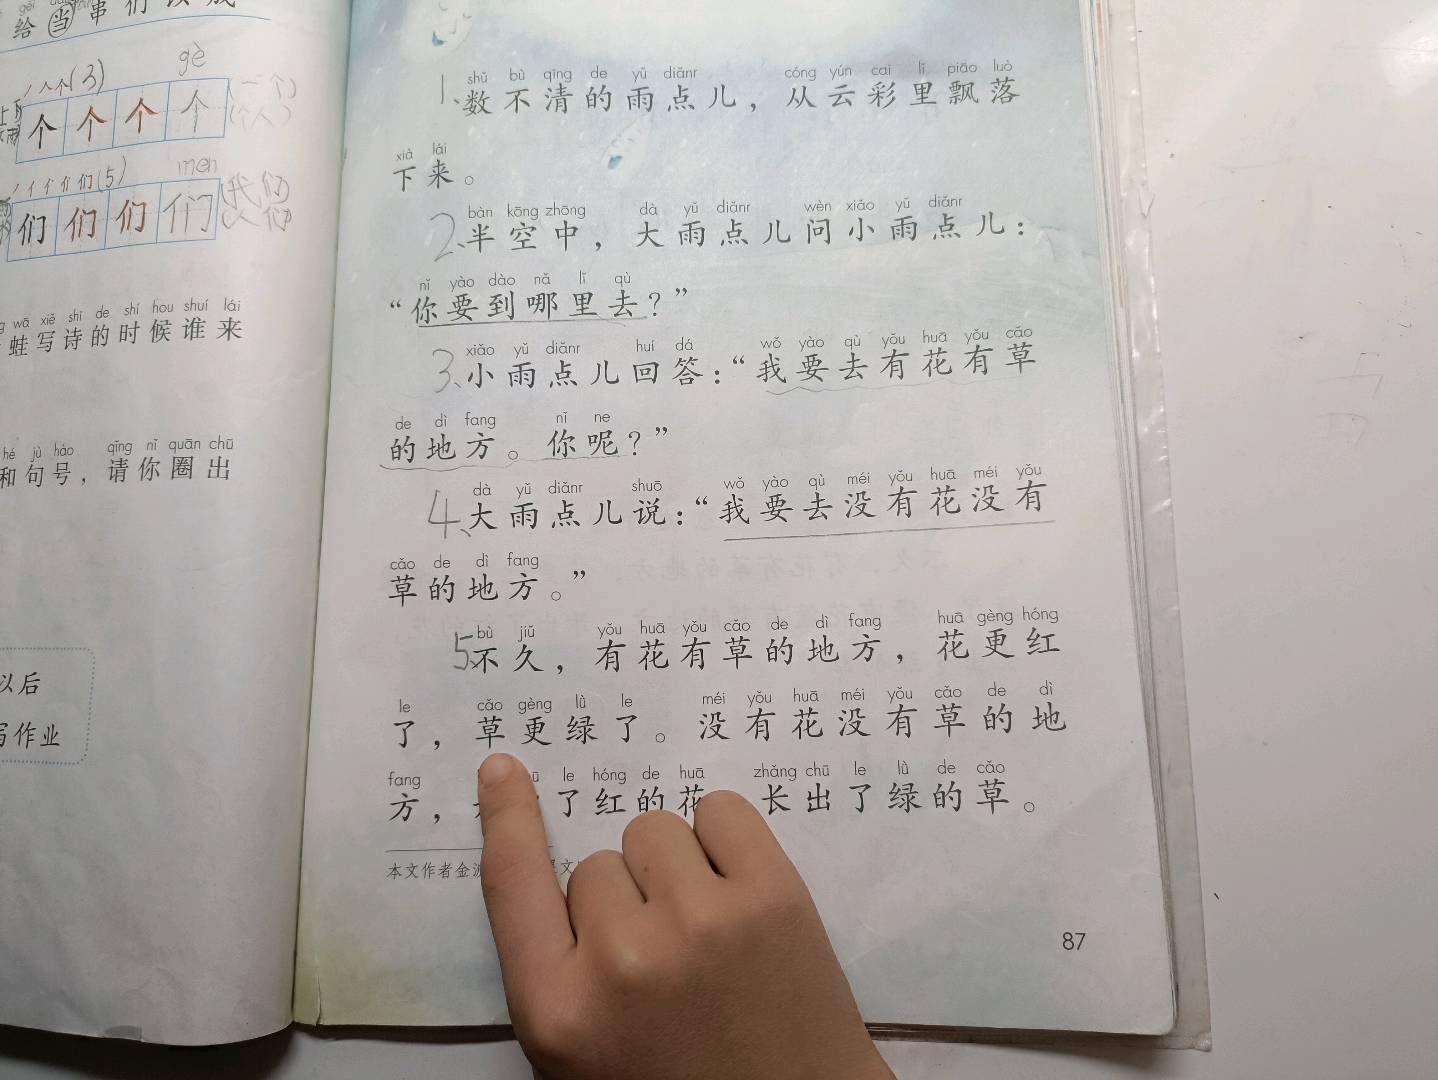 给当串们以成
gè
(3)
个个个个(一个)
(个人)
men
们(5)
们们们们(我们
人们
wā xiě shī de shí hou shuí lái
蛙写诗的时候谁来
hé jù hào qǐng nǐ quān chū
和句号，请你圈出
以后
写作业
shǔ bù qīng de yǔ diǎnr cóng yún cai lǐ piāo luò
1、数不清的雨点儿，从云彩里飘落
xià lái
下来。
bàn kōng zhōng dà yǔ diǎnr wèn xiǎo yǔ diǎnr
2、半空中，大雨点儿问小雨点儿：
nǐ yào dào nǎ lǐ qù
“你要到哪里去？”
xiǎo yǔ diǎnr huí dá wǒ yào qù yǒu huā yǒu cǎo
3、小雨点儿回答：“我要去有花有草
de dì fang nǐ ne
的地方。你呢？”
dà yǔ diǎnr shuō wǒ yào qù méi yǒu huā méi yǒu
4、大雨点儿说：“我要去没有花没有
cǎo de dì fang
草的地方。”
bù jiǔ yǒu huā yǒu cǎo de dì fang huā gèng hóng
5、不久，有花有草的地方，花更红
le cǎo gèng lǜ le méi yǒu huā méi yǒu cǎo de dì
了，草更绿了。没有花没有草的地
fang le hóng de huā zhǎng chū le lǜ de cǎo
方，了红的花长出了绿的草。
本文作者金
87